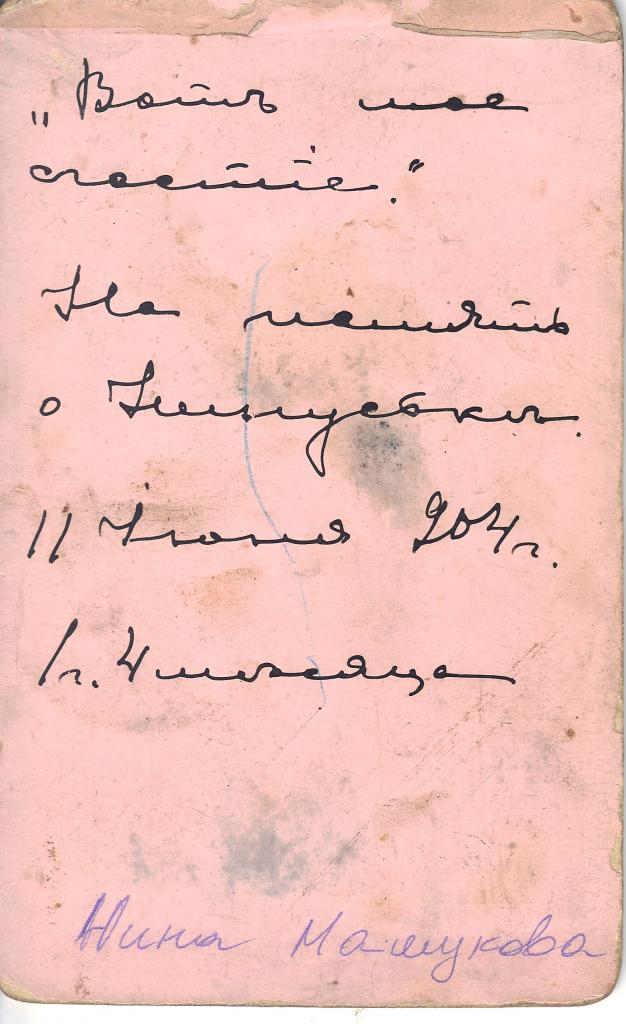 „Вотъ мое
счастіе."
На память
о Нинуськѣ.
11 Іюня 904 г.
1 г. 4 мѣсяца
Нина Мамукова